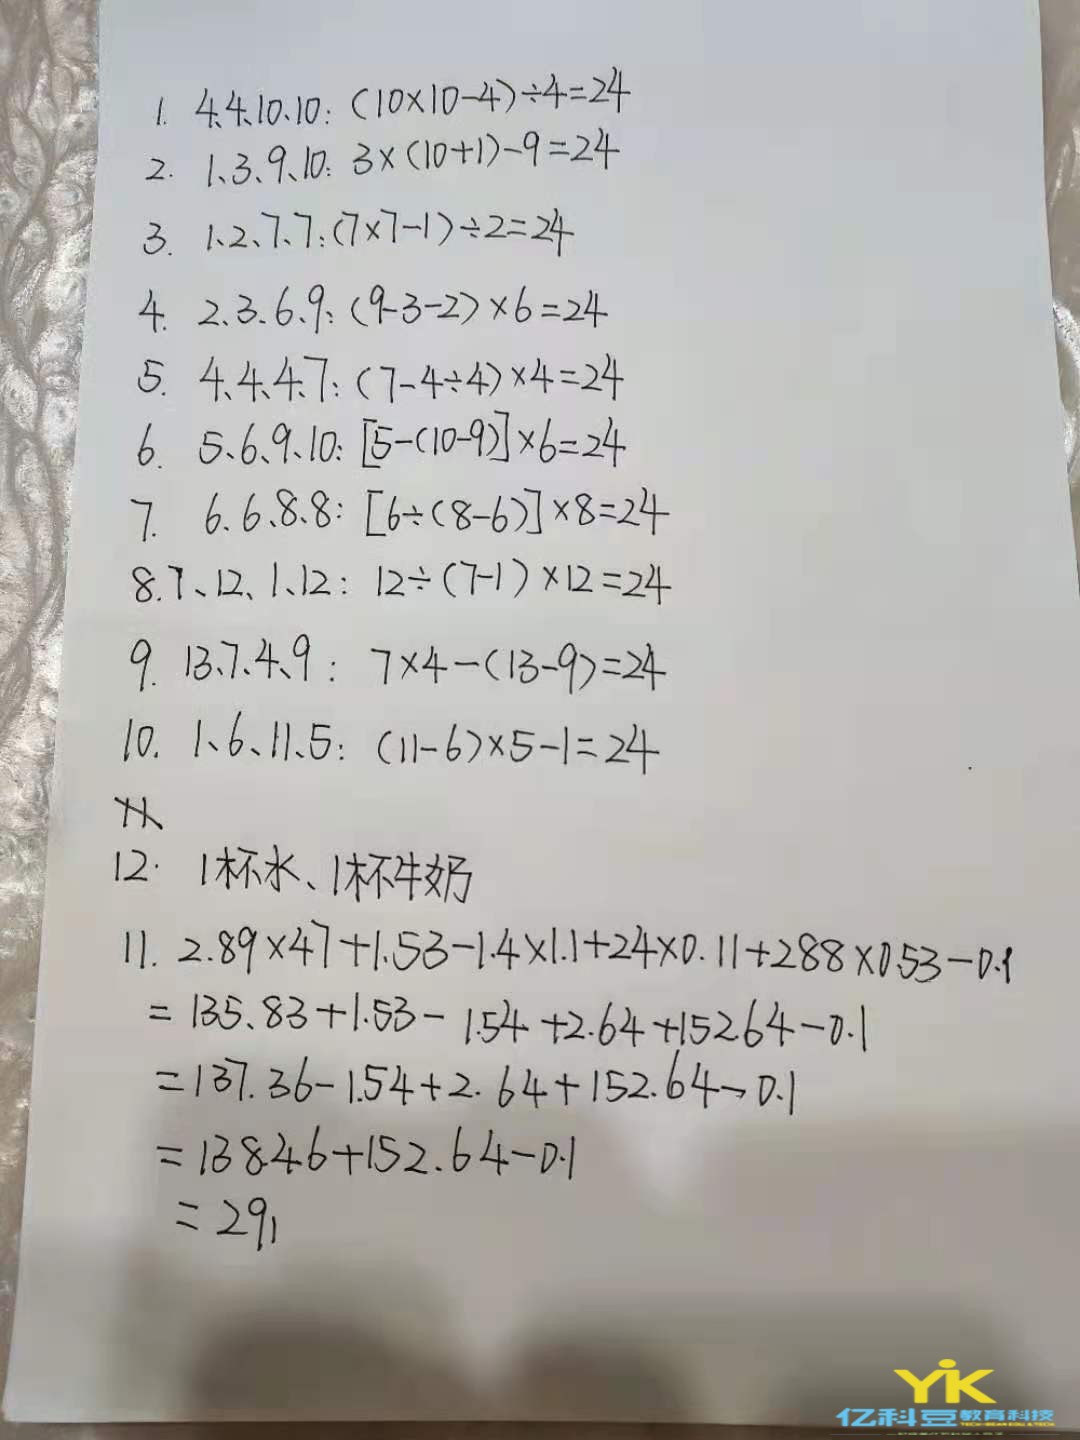 1. 4、4、10、10: (10×10-4)÷4=24
2. 1、3、9、10: 3×(10+1)-9=24
3. 1、2、7、7: (7×7-1)÷2=24
4. 2、3、6、9: (9-3-2)×6=24
5. 4、4、4、7: (7-4÷4)×4=24
6. 5、6、9、10: [5-(10-9)]×6=24
7. 6、6、8、8: [6÷(8-6)]×8=24
8. 7、12、1、12: 12÷(7-1)×12=24
9. 13、7、4、9: 7×4-(13-9)=24
10. 1、6、11、5: (11-6)×5-1=24
12. 1杯水、1杯牛奶
11. 2.89×47+1.53-1.4×1.1+24×0.11+288×0.53-0.1
=135.83+1.53-1.54+2.64+152.64-0.1
=137.36-1.54+2.64+152.64-0.1
=138.46+152.64-0.1
=291
YiK
亿科豆教育科技